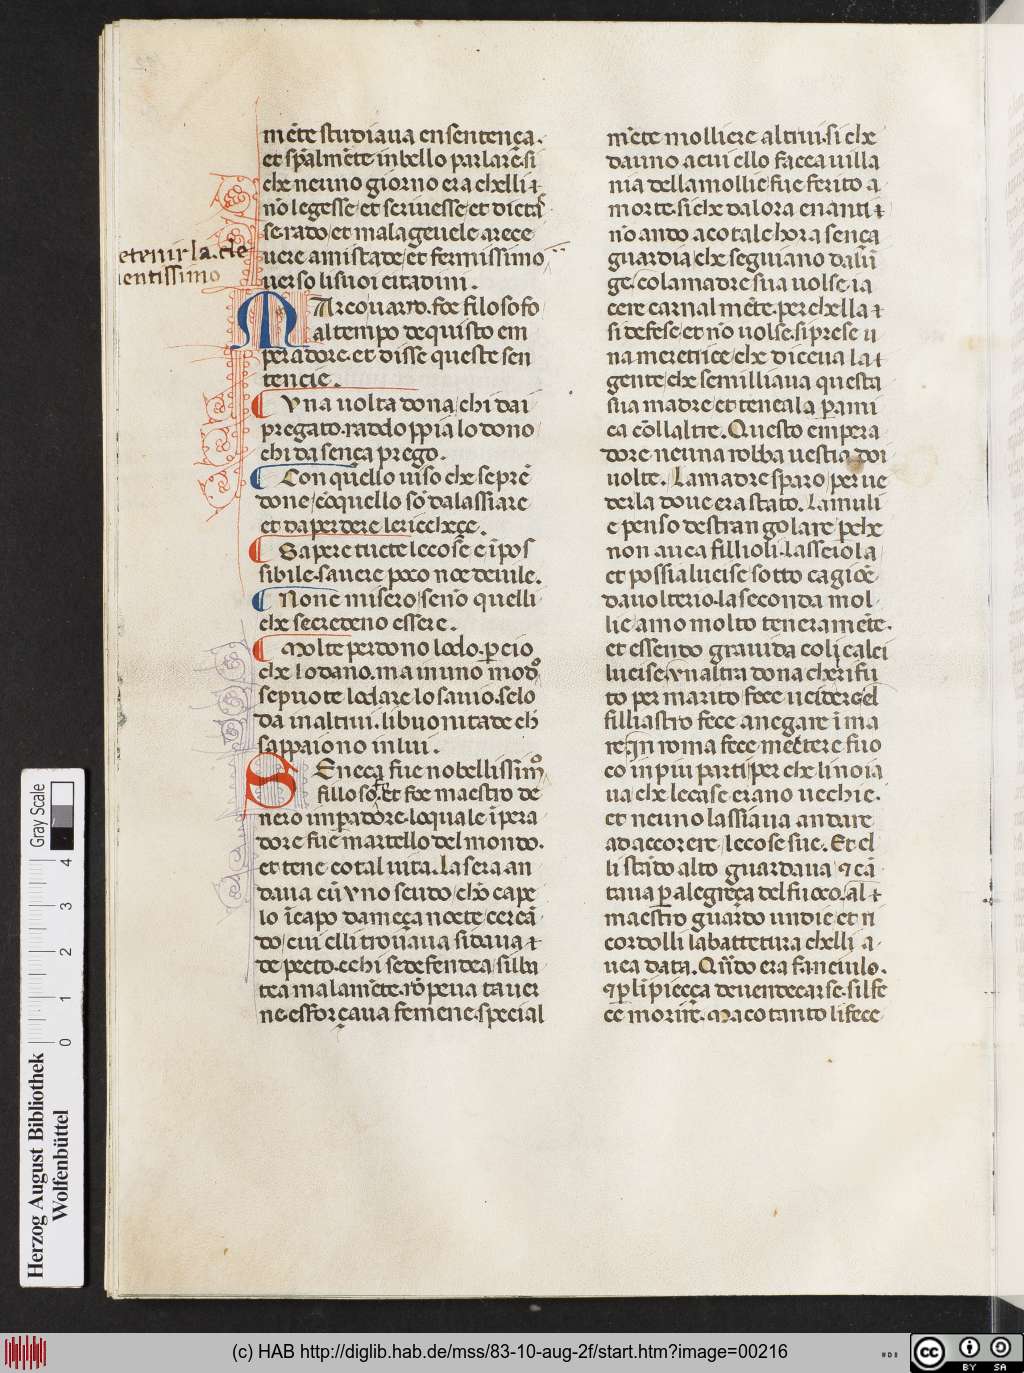 mēte studiaua ensentença.
et spālmēte inbello parlare. si
che neuno giorno era chelli
nō legesse et scriuesse et dicta
se rado et malageuele arece
uere amistade et fermissimo
uerso li suoi citadini.
etenir la. cle
entissimo
MArcouarro. foe filosofo
al tempo dequisto em
peradore. et disse queste sen
tencie.
Vna uolta dona chi dai
pregato. raddoppia lo dono
chi da sença prego.
Con quello uiso che seprē
done cōquello sō dalassiare
et da perdere lericcheçe.
Sapere tucte lecose e īpos
sibile. sauere poco noe deuile.
None misero senō quelli
che secredeno essere.
Molte perdono lodo. p cio
che lodano. ma in uno modo
sepuote lodare lo sauio. selo
da in altrui. li buonitade ch
sappaiono in lui.
SEneca fue nobellissimo
filloso. Et foe maestro de
nero imperadore. loquale īpera
dore fue martello del mondo.
et tene cotal uita. La sera an
daua cū vno scudo chō cape
lo īcapo dameça nocte cercā
do cui elli trouaua si daua
de pecto. echi se defendea silba
tea malamēte. rōpeua tauer
ne. esforçaua femene. special
mēte molliere altrui. si che
dauno acui ello facea uilla
nia dellamollie fue ferito a
morte. si che dalora enanti
nō ando acotal chora sença
guardia che seguiano dalū
ge. cola madre sua uolse ia
cere carnal mēte. per chella
si defese et nō uolse. si prese u
na meretrice che diceua la
gente che semilliaua questa
sua madre et teneala p ami
ca cōllaltre. Questo empera
dore neuna robba uestia doi
uolte. La madre sparo per ue
derla doue era stato. La muli
e penso destrangolare pche
non auea fillioli. lasseiola
et possia lucise sotto cagiōe
dauolterio. la seconda mol
lie amo molto teneramēte.
et essendo grauida coli calci
lucise. vnaltra dona cherifu
to per marito fece ucidere. el
filliastro fece anegare ī ma
re. ƞn roma fece mectere fuo
co in piu parti per che li noia
ua che lecase erano uechie.
et neuno lassiaua andare
ad accorere lecose sue. Et el
li stādo alto guardaua ꝯ cā
taua p alegreça del fuoco. al
maestro guardo undie et ri
cordolli la battetura chelli a
uea data. Qūdo era fanciulo.
ꝯ p lī piecça deuendecarse. silfe
ce morire. Ma cotanto li fece
Herzog August Bibliothek
Wolfenbüttel
Gray Scale
0 1 2 3 4
(c) HAB http://diglib.hab.de/mss/83-10-aug-2f/start.htm?image=00216
cc BY SA